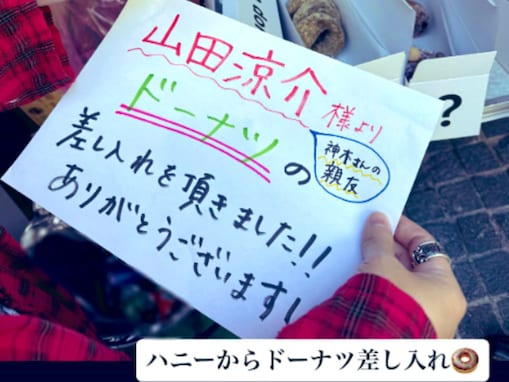 山田涼介様より
ドーナツの
神木さんの
親友
差し入れを頂きました!!
ありがとうございます!
?
ハニーからドーナツ差し入れ🍩